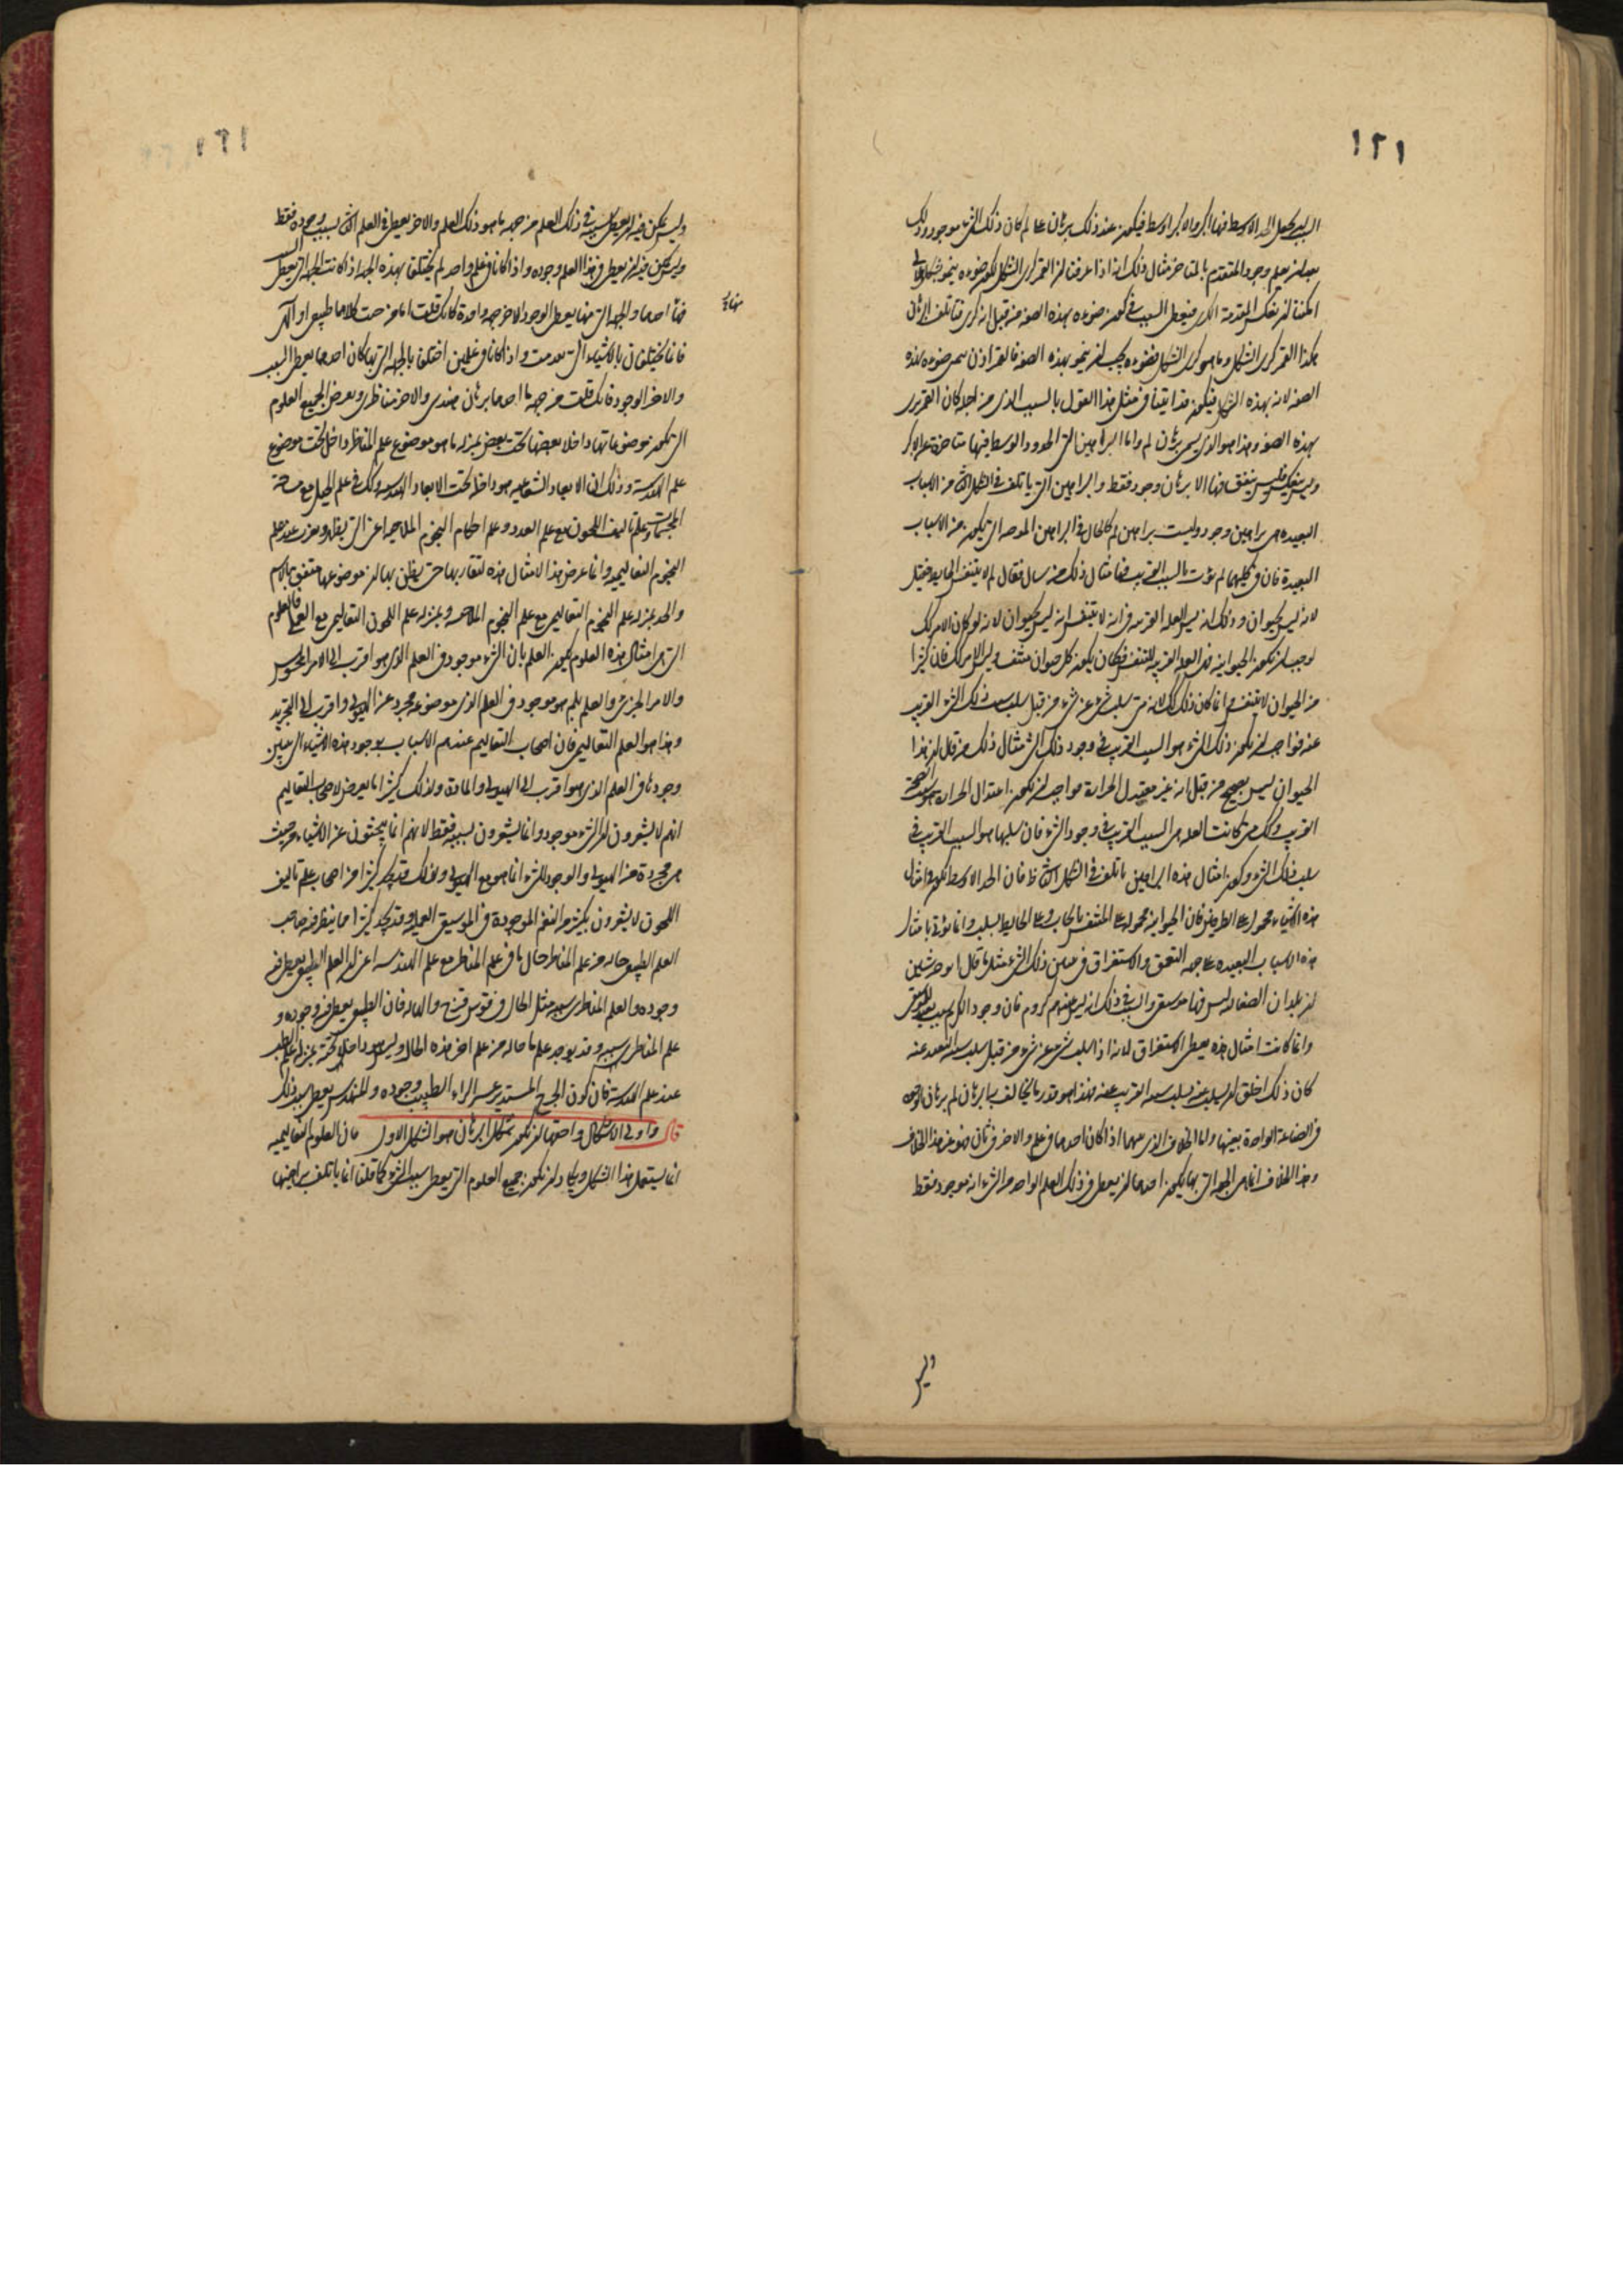 ١٢١
السبب يجعل الحد الاوسط فيها اكبر والاكبر اوسط فيكون عند ذلك برهان على لم كان ذلك الشي موجودا وذلك
بعد ان يعلم وجود المتقدم بالمتاخر مثال ذلك انه اذا عرفنا ان القمر كري الشكل لكون ضوءه ينمو
امكننا ان نعكس المقدمة الكبرى فيعطى السبب في كون ضوءه بهذه الصفة من قبل انه كري فتاتلف البرهان
هكذا القمر كري الشكل وما هو كري الشكل فضوءه يجب ان ينمو بهذه الصفة فالقمر اذن ينمى ضوءه بهذه
الصفة لانه بهذه الشكل فيكون قد اتينا في مثل هذا القول بالسبب الذي من اجله كان القمر يرى
بهذه الصفة وهذا هو الذي يسمى برهان لم واما البراهين التي الحدود الوسط فيها متاخرة عن الاكبر
وليس ينعكس فليس يتفق فيها الا برهان وجود فقط والبراهين التي ياتلف في الشكل الثاني من الاسباب
البعيدة هي براهين وجود وليست براهين لم كالحال في البراهين الموجبة التي يكون من الاسباب
البعيدة فان في كليهما لم يؤت بالسبب القريب فيها مثال ذلك من سال فقال لم لا يتنفس الحايط فقيل
لانه ليس بحيوان وذلك انه ليس العلة القريبة في انه لا يتنفس انه ليس بحيوان لانه لو كان الامر كذلك
لوجب ان تكون الحيوانية هي العلة القريبة للتنفس فكان يكون كل حيوان متنفس وليس الامر كذلك فان كثيرا
من الحيوان لا يتنفس وانما كان ذلك كذلك لانه متى سلب شي عن شي من قبل سلب سبب ذلك الشي القريب
عنه فواجب ان يكون ذلك الشي هو السبب القريب في وجود ذلك الشي مثال ذلك من قال ان هذا
الحيوان ليس بصحيح من قبل انه غير معتدل الحرارة فواجب ان يكون اعتدال الحرارة هو سبب الصحة
القريب وكذلك متى كانت العلة هي السبب القريب في وجود الشي فان سلبها هو السبب القريب في
سلب ذلك الشي وتكون امثال هذه البراهين ياتلف في الشكل الثاني فان الحد الاوسط تكون في امثال
هذه الاشياء محمولا على الطرفين فان الحيوانية محمولة على المتنفس بايجاب وعلى الحايط بسلب وانما يؤتى بامثال
هذه الاسباب البعيدة على جهة التعمق والاستغراق في معنى ذلك الشي مثل ما قال انوخرشيس
ان بلدان الصقالبة ليس فيها موسيقى والسبب في ذلك انه ليس عندهم كروم فان وجود الكرم سبب بعيد للموسيقى
وانما كانت امثال هذه يعطى الاستغراق لانه اذا سلب شي عن شي من قبل سلب سببه البعيد عنه
كان ذلك اخلق ان يسلب عنه بسلب سببه القريب عنه فهذا هو قدر ما يخالف بها برهان لم برهان الوجود
في الصناعة الواحدة بعينها واما الخلاف الذي بينهما اذا كان احدهما في علم والاخر في ثان فهو غير هذا الخلاف
وهذا الخلاف انما هي الجهة التي بها يكون احدهما ان يعطى في ذلك العلم الواحد من الشي انه موجود فقط
وليس
١٢١
وليس يمكن فيه ان يعطي سببه في ذلك العلم من جهة ما هو ذلك العلم والاخر يعطي في العلم الثاني سبب وجوده فقط
وليس يمكن فيه ان يعطي في هذا العلم وجوده واذا كانا في علم واحد لم يختلفا بهذه الجهة اذ كانت الجهة التي يعطى السبب
منها احدهما والجهة التي منها يعطي الوجود الاخر جهة واحدة كانك قلت اما من حيث كلاهما طبيعي او الهي
منهما
فانما يختلفان بالاشياء التي تقدمت واذا كانا في علمين اختلفا بالجهة التي بها كان احدهما يعطي السبب
والاخر الوجود فانك قلت من جهة ما احدهما برهان هندسي والاخر مناظري ويعرض لجميع العلوم
التي تكون موضوعاتها داخلا بعضها تحت بعض بمنزلة ما هو موضوع علم المناظر داخل تحت موضوع
علم الهندسة وذلك ان الابعاد الشعاعية هو داخلة تحت الابعاد الهندسية وكذلك في علم الحيل مع مساحة
المجسمات وعلم تاليف اللحون مع علم العدد وعلم احكام النجوم الملاحية اعني التي يظهر ويغرب عند علم
النجوم التعاليمية وانما عرض هذا لامثال هذه لتقاربها حتى يظن بها ان موضوعها متفق بالاسم
والحد بمنزلة علم النجوم التعاليمي مع علم النجوم الملاحية وبمنزلة علم اللحون التعاليمي مع العملي فالعلوم
التي هي امثال هذه العلوم يكون العلم بان الشي موجود في العلم الذي هو اقرب الى الامر المحسوس
والامر الجزئي والعلم بلم هو موجود في العلم الذي موضوعه مجرد عن الهيولى واقرب الى التجريد
وهذا هو العلم التعاليمي فان اصحاب التعاليم عندهم الاسباب بوجود هذه الاشياء التي يتبين
وجودها في العلم الذي هو اقرب الى الهيولى والمادة ولذلك كثيرا ما يعرض لاصحاب التعاليم
انهم لا يشعرون ان الشي موجود وانما يشعرون بسببه فقط لانهم انما يبحثون عن الاشياء من حيث
هي مجردة من الهيولى والوجود للشي انما هو مع الهيولى ولذلك قد يجد كثيرا من اصحاب علم تاليف
اللحون لا يشعرون بكثير من النغم الموجودة في الموسيقى العملية وقد يجد كثيرا مما ينظر فيه صاحب
العلم الطبيعي حاله من علم المناظر حال ما في علم المناظر مع علم الهندسة اعني ان العلم الطبيعي يعطي فيه
وجوده والعلم المناظري سببه مثل الحال في قوس قزح والهالة فان الطبيعي يعطي فيه وجوده و
علم المناظر سببه وقد يوجد علم ما حاله من علم اخر هذه الحال وليس هو داخلا تحته بمنزلة علم الطب
عند علم الهندسة فان كون الجرح المستدير عسر البراء الطبيب وجوده والمهندس يعطي سبب ذلك
قال واولى الاشكال واحقها ان يكون شكل البرهان هو الشكل الاول فان العلوم التعاليمية
انما يستعمل هذا الشكل ويكاد ان تكون جميع العلوم التي يعطي سبب الشي كما قلنا انما ياتلف براهينها